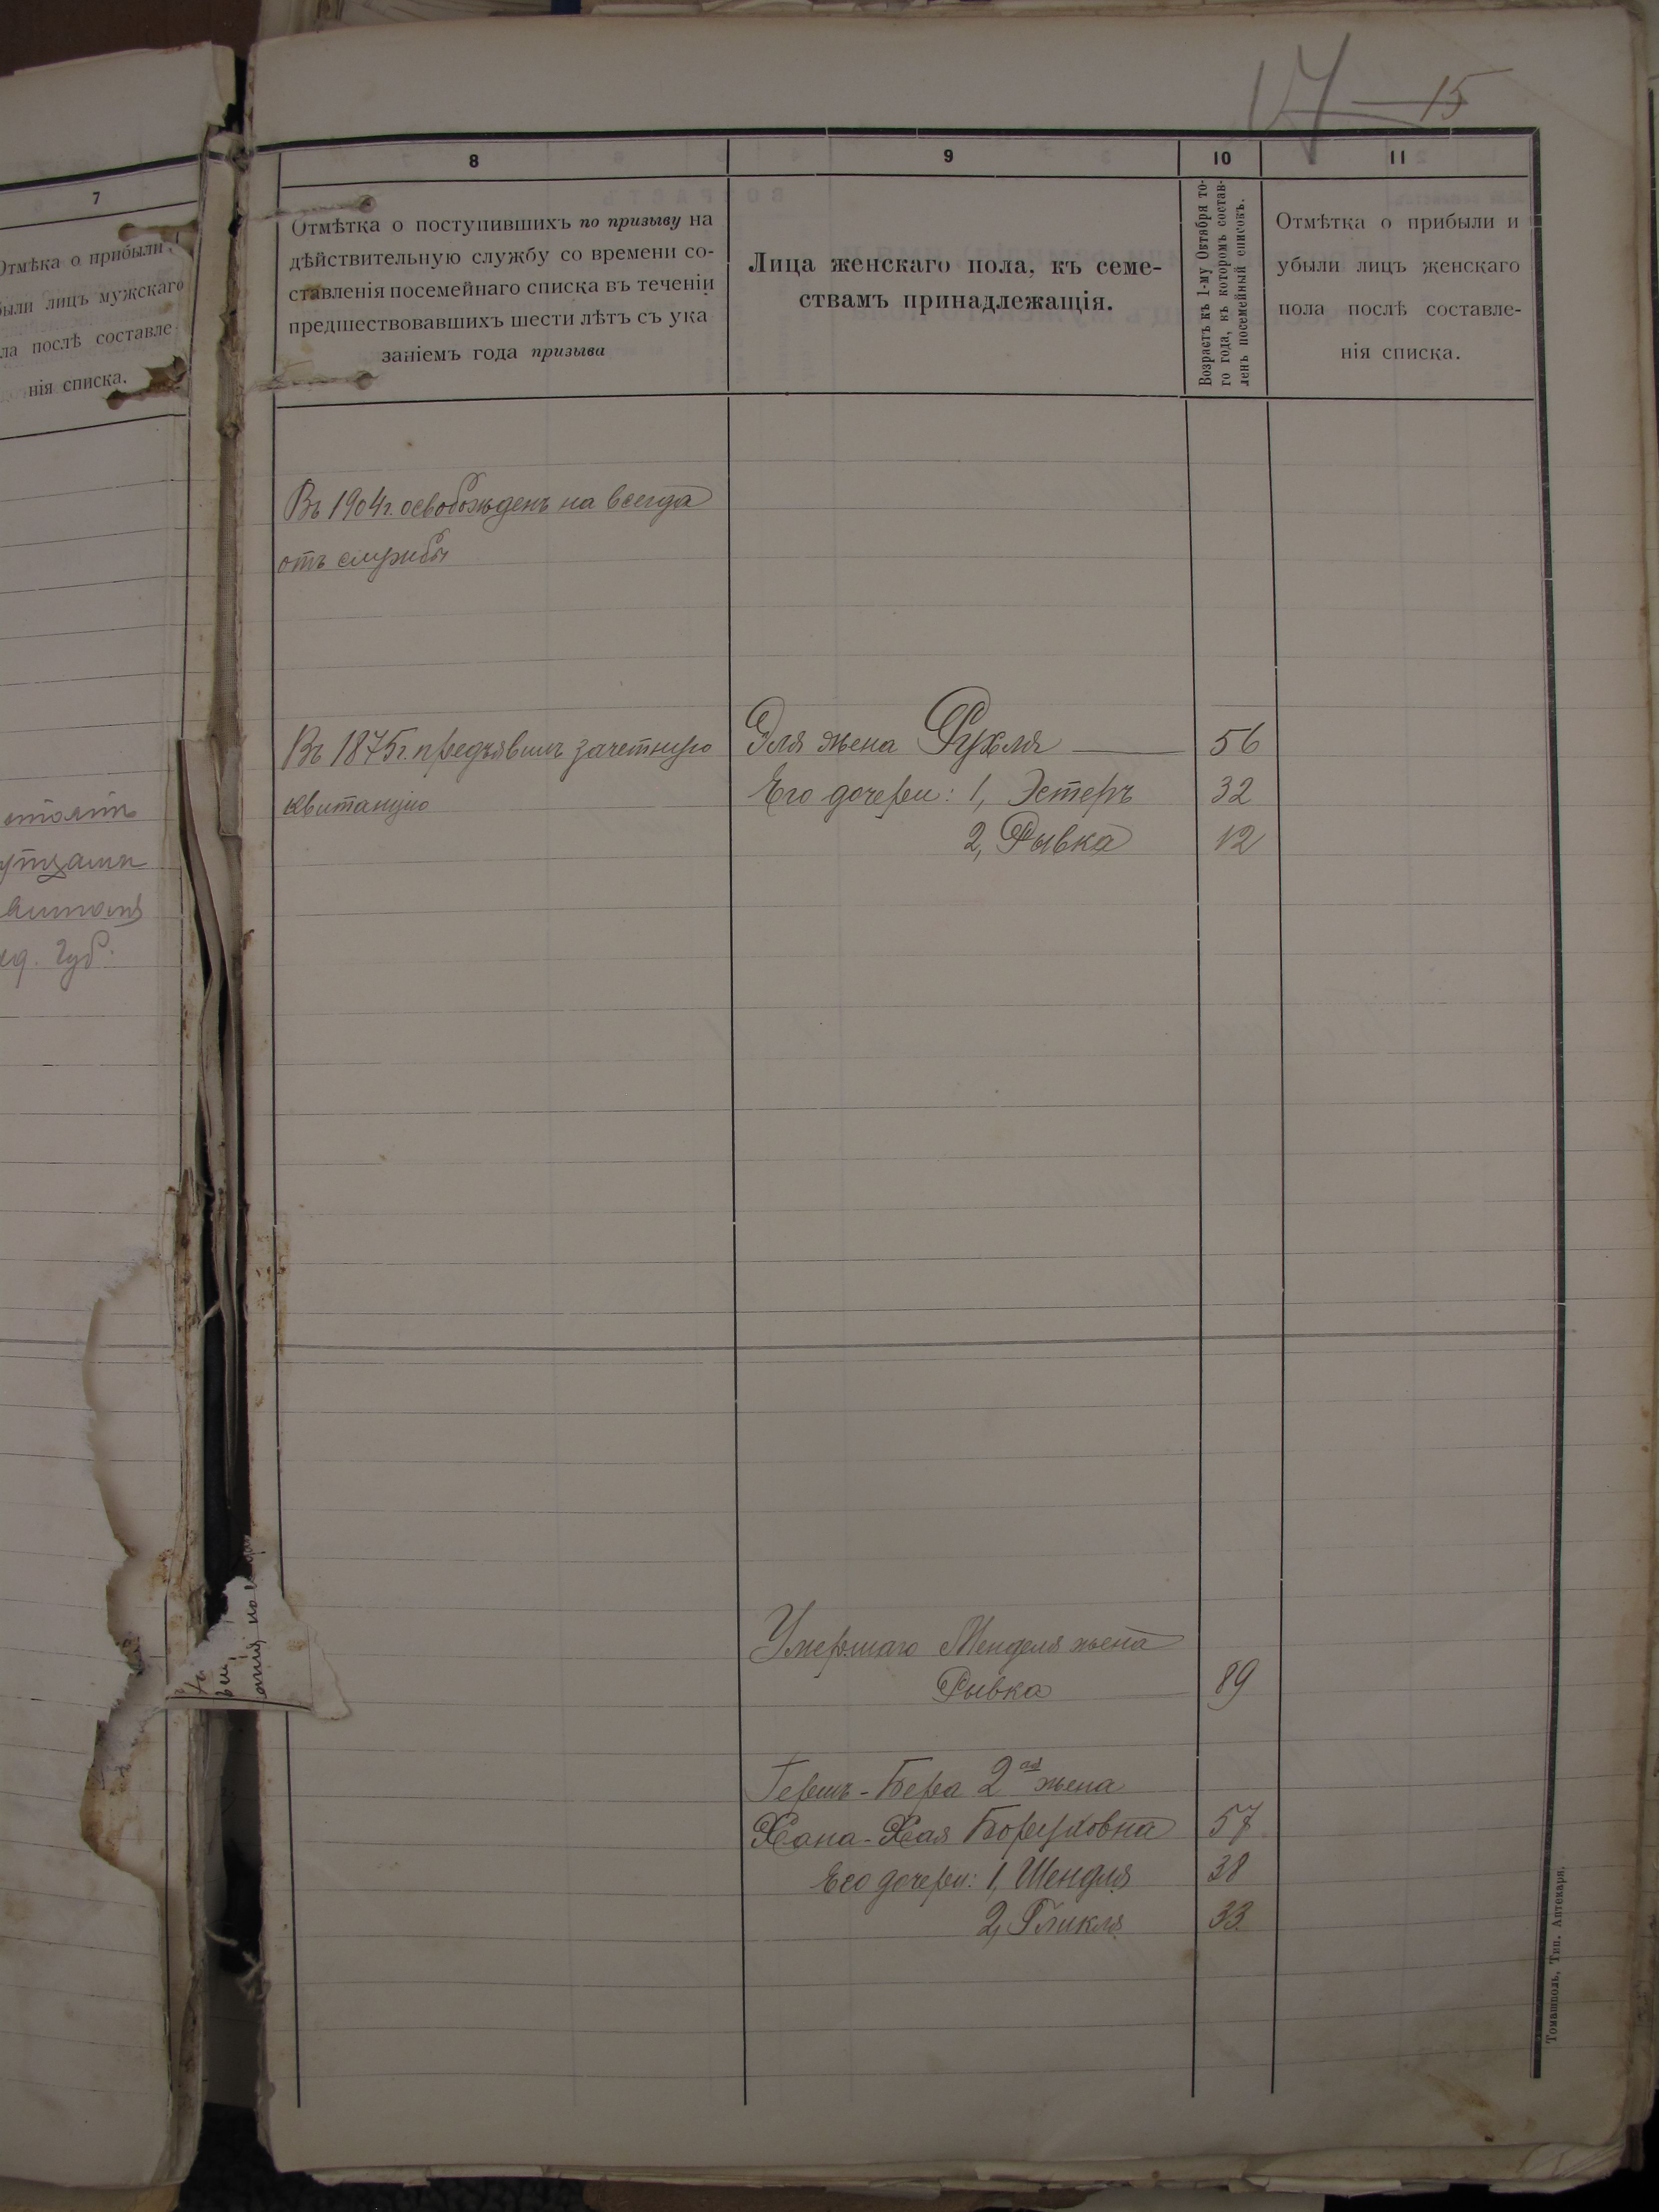 17 — 15
7
Отмѣка о прибыли
были лицъ мужскаго
ла послѣ составле-
нія списка.
ед. Губ.
8
Отмѣтка о поступившихъ по призыву на
дѣйствительную службу со времени со-
ставленія посемейнаго списка въ теченіи
предшествовавшихъ шести лѣтъ съ ука
заніемъ года призыва
9
Лица женскаго пола, къ семе-
ствамъ принадлежащія.
10
Возрастъ къ 1-му Октября то-
го года, къ которомъ состав-
ленъ посемейный списокъ.
11
Отмѣтка о прибыли и
убыли лицъ женскаго
пола послѣ составле-
нія списка.
Въ 1904г. освобожденъ на всегда
отъ службы
Въ 1875г. предъявилъ зачетную
квитанцію
Эля жена Рухля — 56
Его дочери: 1, Эстеръ 32
2, Рывка 12
Умершаго Менделя жена
Рывка 89
Гершъ-Бера 2ая жена
Хана-Хая Боруховна 57
Его дочери: 1, Шендля 38
2, Гликля 33
Томашполь, Тип. Аптекаря.